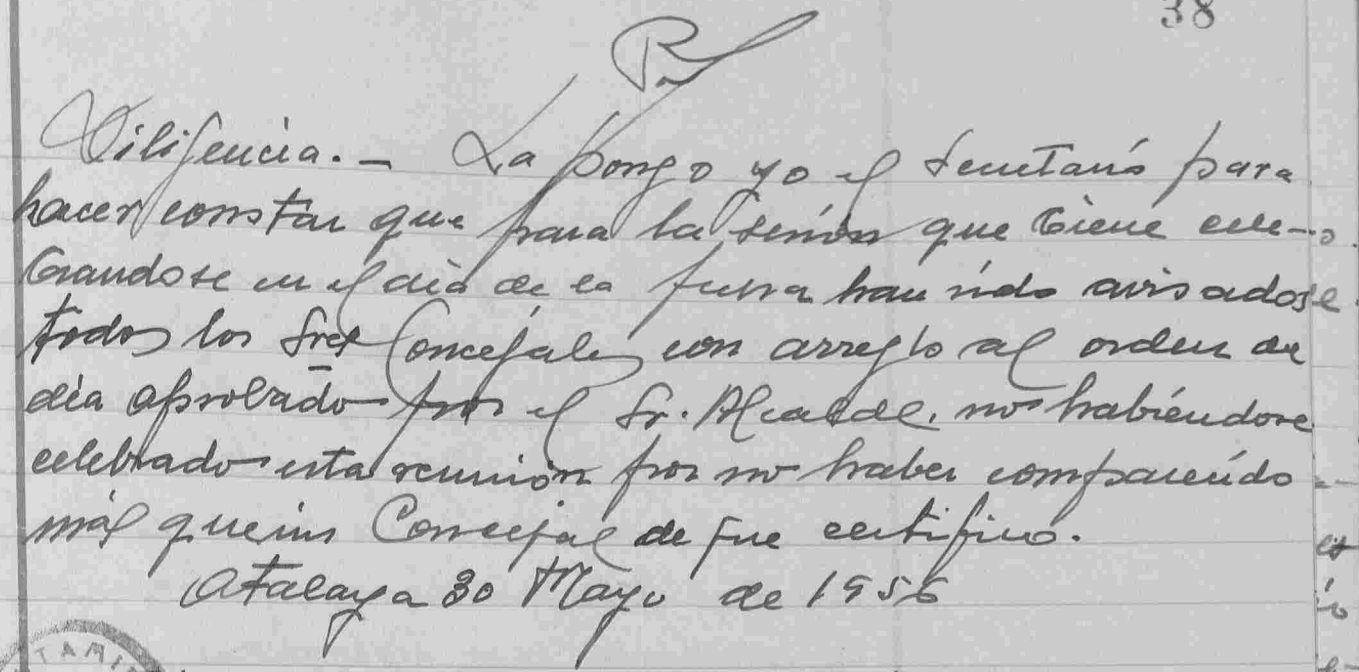 38
Diligencia.- La pongo yo el Secretario para
hacer constar que para la sesión que tiene cele-
brandose en el día de la fecha han sido avisados
todos los Sres Concejales con arreglo al orden de
día aprobado por el Sr. Alcalde, no habiéndose
celebrado esta reunión por no haber comparecido
más que un Concejal de que certifico.
Atalaya 30 Mayo de 1956